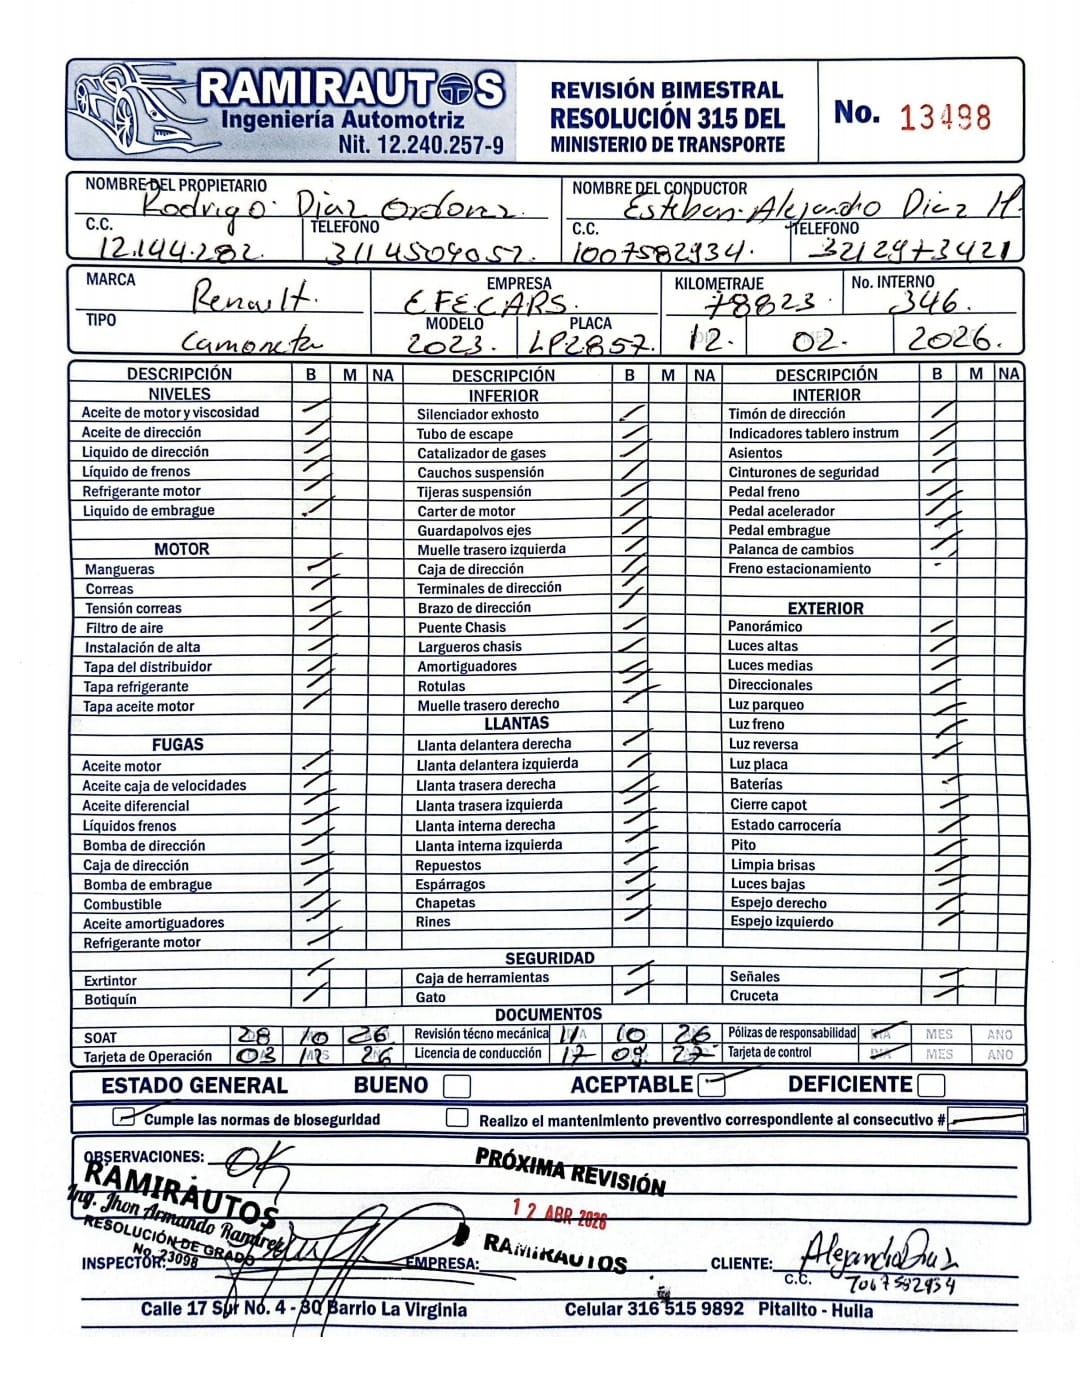 RAMIRAUTOS
Ingeniería Automotriz
Nit. 12.240.257-9
REVISIÓN BIMESTRAL
RESOLUCIÓN 315 DEL
MINISTERIO DE TRANSPORTE
No. 13498
NOMBRE DEL PROPIETARIO Rodrigo Diaz Ordoñez.
NOMBRE DEL CONDUCTOR Esteban Alejandro Diaz H.
C.C. 12.144.282. TELEFONO 3114509052.
C.C. 1007582934. TELEFONO 3212973421
MARCA Renault. EMPRESA EFECARS. KILOMETRAJE 78823. No. INTERNO 346.
TIPO Camoneta MODELO 2023. PLACA LP2857. 12. 02. 2026.
DESCRIPCIÓN B M NA DESCRIPCIÓN B M NA DESCRIPCIÓN B M NA
NIVELES INFERIOR INTERIOR
Aceite de motor y viscosidad Silenciador exhosto Timón de dirección
Aceite de dirección Tubo de escape Indicadores tablero instrum
Liquido de dirección Catalizador de gases Asientos
Líquido de frenos Cauchos suspensión Cinturones de seguridad
Refrigerante motor Tijeras suspensión Pedal freno
Liquido de embrague Carter de motor Pedal acelerador
Guardapolvos ejes Pedal embrague
MOTOR Muelle trasero izquierda Palanca de cambios
Mangueras Caja de dirección Freno estacionamiento
Correas Terminales de dirección
Tensión correas Brazo de dirección EXTERIOR
Filtro de aire Puente Chasis Panorámico
Instalación de alta Largueros chasis Luces altas
Tapa del distribuidor Amortiguadores Luces medias
Tapa refrigerante Rotulas Direccionales
Tapa aceite motor Muelle trasero derecho Luz parqueo
LLANTAS Luz freno
FUGAS Llanta delantera derecha Luz reversa
Aceite motor Llanta delantera izquierda Luz placa
Aceite caja de velocidades Llanta trasera derecha Baterías
Aceite diferencial Llanta trasera izquierda Cierre capot
Líquidos frenos Llanta interna derecha Estado carrocería
Bomba de dirección Llanta interna izquierda Pito
Caja de dirección Repuestos Limpia brisas
Bomba de embrague Espárragos Luces bajas
Combustible Chapetas Espejo derecho
Aceite amortiguadores Rines Espejo izquierdo
Refrigerante motor
SEGURIDAD
Exrtintor Caja de herramientas Señales
Botiquín Gato Cruceta
DOCUMENTOS
SOAT 28 10 26 Revisión técno mecánica 11 10 26 Pólizas de responsabilidad DIA MES ANO
Tarjeta de Operación 03 12 26 Licencia de conducción 17 09 27 Tarjeta de control DIA MES ANO
ESTADO GENERAL BUENO ACEPTABLE DEFICIENTE
Cumple las normas de bioseguridad Realizo el mantenimiento preventivo correspondiente al consecutivo #
OBSERVACIONES: OK
PRÓXIMA REVISIÓN
12 ABR 2026
RAMIRAUTOS
RAMIRAUTOS
Ing. Jhon Armando Ramírez
RESOLUCIÓN DE GRADO
No. 23098
INSPECTOR: EMPRESA: CLIENTE: Alejandro Diaz
C.C. 7067582934
Calle 17 Sur No. 4 - 30 Barrio La Virginia Celular 316 515 9892 Pitalito - Huila